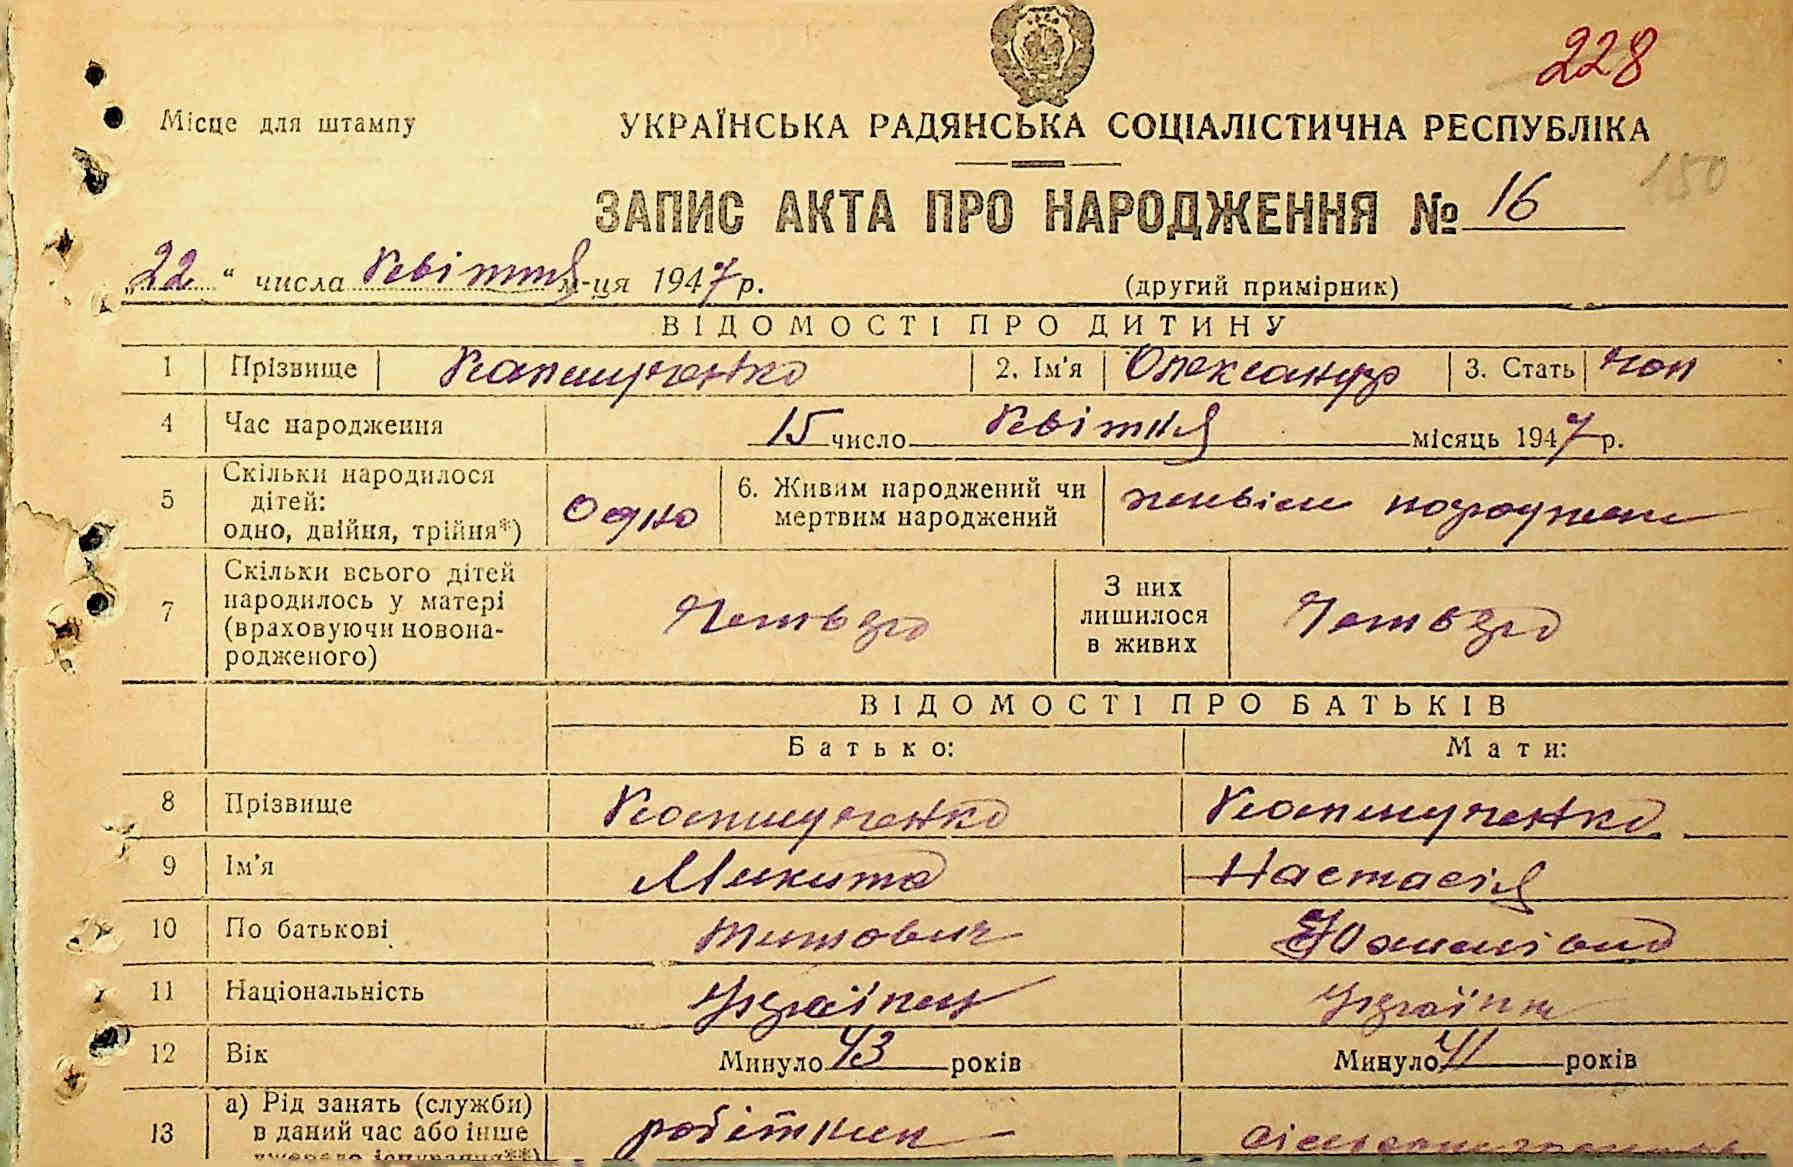 228
Місце для штампу
УКРАЇНСЬКА РАДЯНСЬКА СОЦІАЛІСТИЧНА РЕСПУБЛІКА
150
ЗАПИС АКТА ПРО НАРОДЖЕННЯ № 16
„22“ числа Квітня м-ця 1947 р. (другий примірник)
ВІДОМОСТІ ПРО ДИТИНУ
1 Прізвище Капшученко 2. Ім'я Олександр 3. Стать чол
4 Час народження 15 число Квітня місяць 1947 р.
5 Скільки народилося дітей: одно, двійня, трійня*) Одно 6. Живим народжений чи мертвим народжений живім
7 Скільки всього дітей народилось у матері (враховуючи новонародженого) Четверо З них лишилося в живих Четверо
ВІДОМОСТІ ПРО БАТЬКІВ
Батько: Мати:
8 Прізвище Капшученко Капшученко
9 Ім'я Микита Настасія
10 По батькові Титович
11 Національність Українец Українк
12 Вік Минуло 43 років Минуло 41 років
13 а) Рід занять (служби) в даний час або інше джерело існування**) робітник